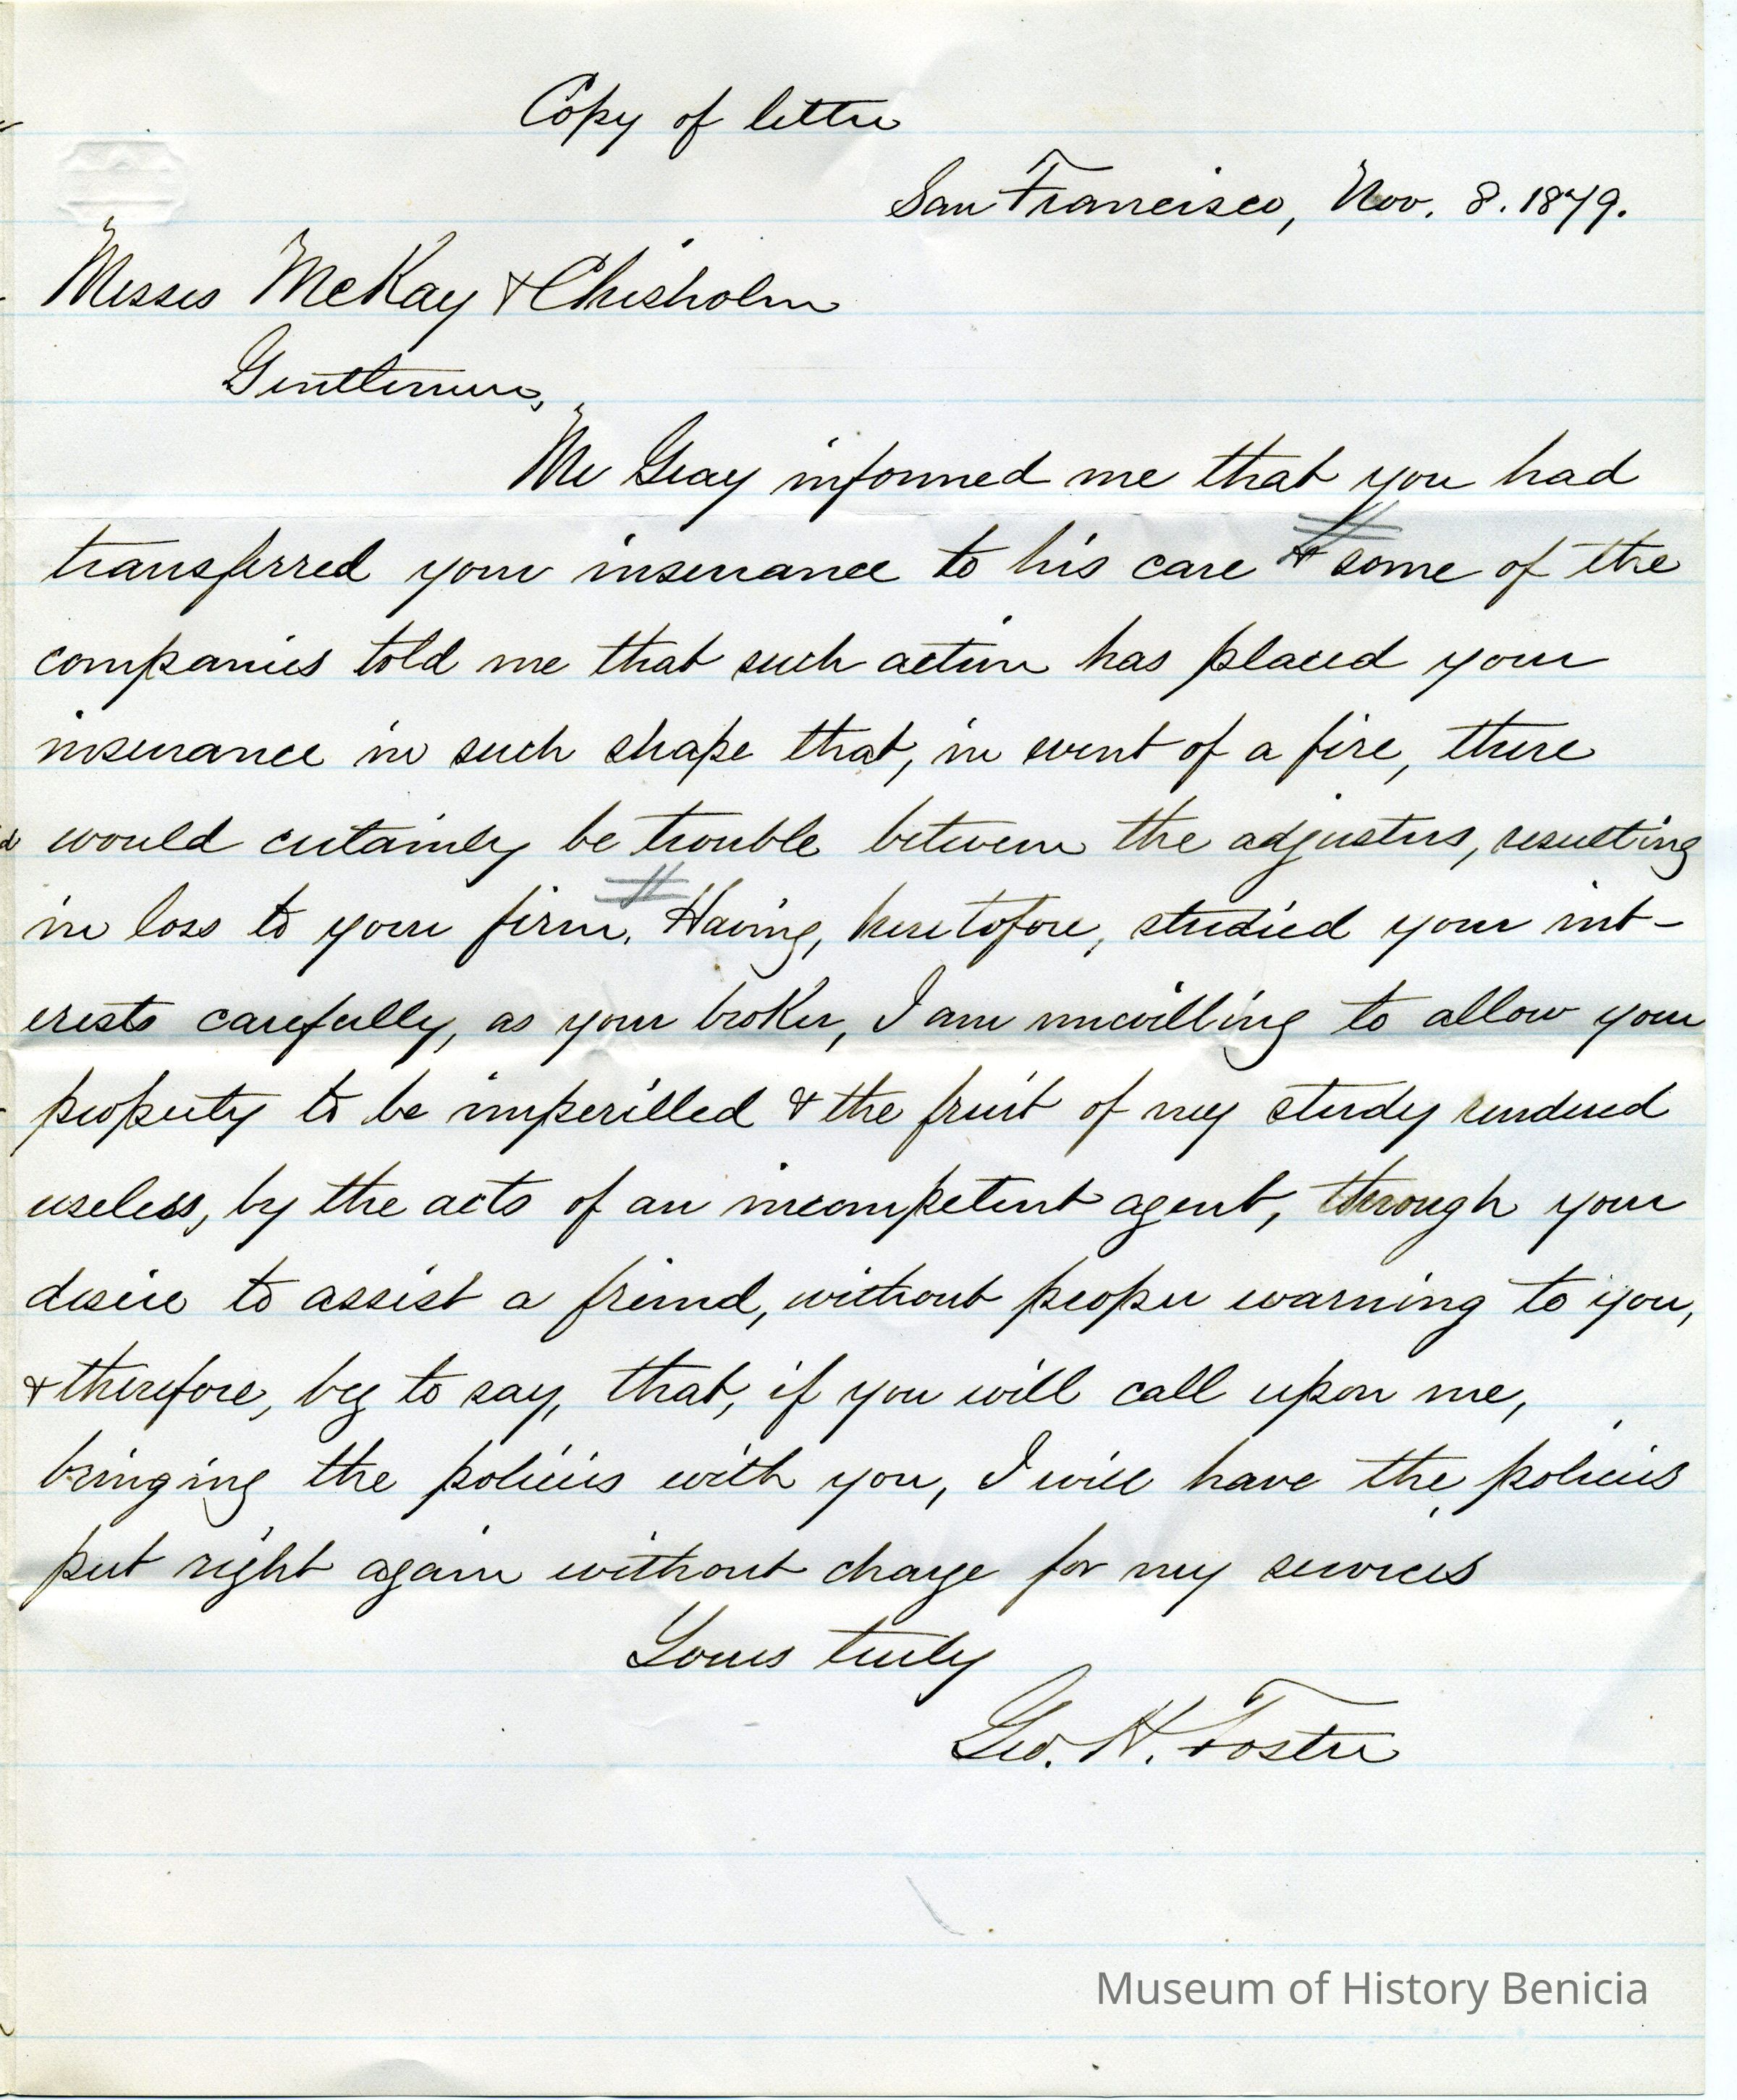 Copy of letter
San Francisco, Nov. 8. 1879.
Messrs McKay & Chisholm
Gentlemen,
Mr Gray informed me that you had
transferred your insurance to his care & some of the
companies told me that such action has placed your
insurance in such shape that, in event of a fire, there
would certainly be trouble between the adjusters, resulting
in loss to your firm. Having, heretofore, studied your int-
erests carefully, as your broker, I am unwilling to allow your
property to be imperilled & the fruit of my study rendered
useless, by the acts of an incompetent agent, through your
desire to assist a friend, without proper warning to you,
& therefore, beg to say, that, if you will call upon me,
bringing the policies with you, I will have the policies
put right again without charge for my services
Yours truly
Geo. H. Foster
Museum of History Benicia